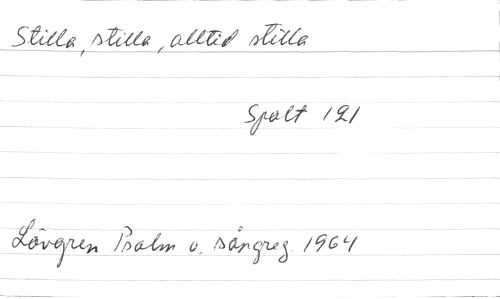 Stilla, stilla, alltid stilla
Spalt 121
Lövgren Psalm o. sångreg. 1964